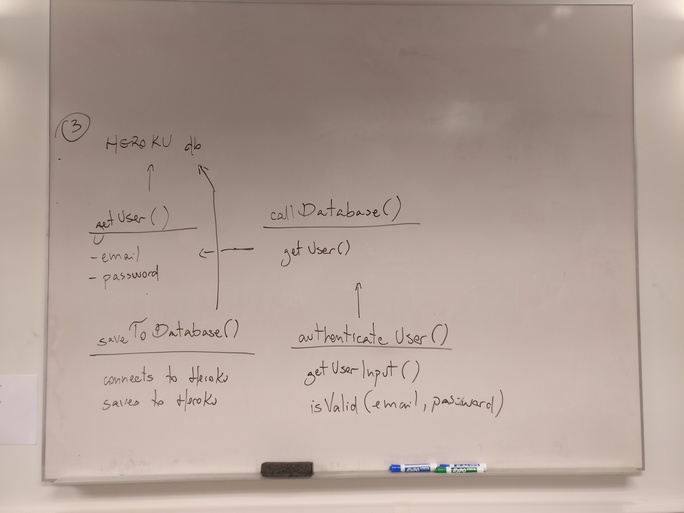 3
HEROKU db
getUser()
- email
- password
callDatabase()
getUser()
saveToDatabase()
connects to Heroku
saves to Heroku
authenticateUser()
getUserInput()
isValid(email, password)